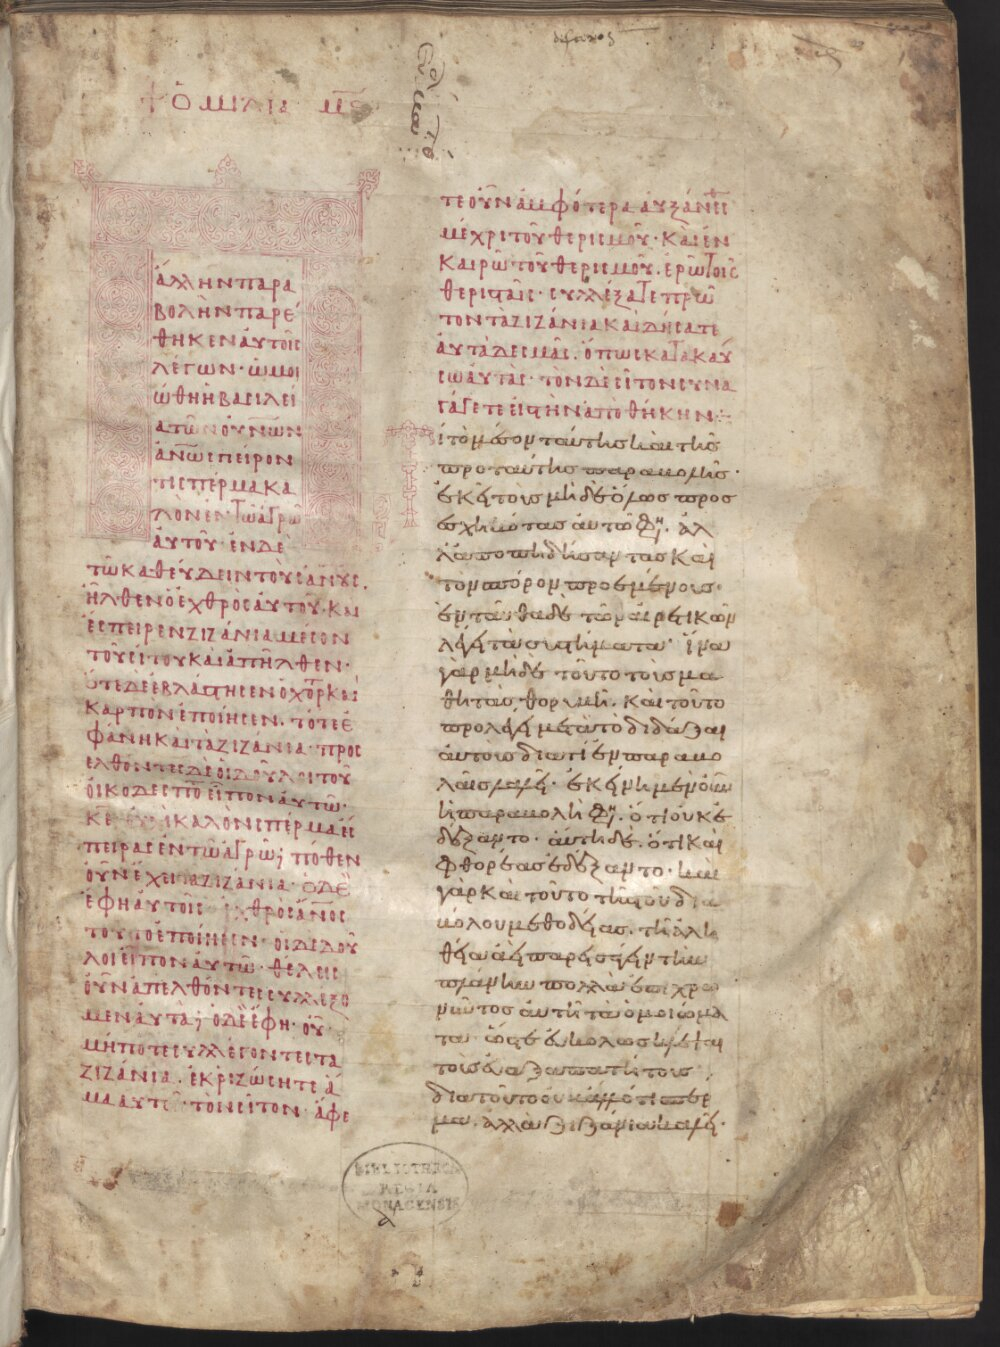 ὉΜΙΛΙΑ ΜΕ
ἄλλην παρα
βολὴν παρέ
θηκεν αὐτοῖς
λέγων· ὡμοι
ώθη ἡ βασιλεί
α τῶν οὐνῶν
ἀνῶ σπείρον
τι σπέρμα κα
λὸν ἐν τῶ ἀγρῶ
αὐτοῦ· ἐν δὲ
τῶ καθεύδειν τοὺς ἀνους.
ἦλθεν ὁ ἐχθρὸς αὐτοῦ· καὶ
ἔσπειρεν ζιζάνια μέσον
τοῦ σίτου καὶ ἀπῆλθεν·
ὅτε δὲ ἐβλάστησεν ὁ χόρτ καὶ
καρπὸν ἐποίησεν. τότε ἐ
φάνη καὶ τὰ ζιζάνια· προς
ελθόντες δὲ οἱ δοῦλοι τοῦ
οἰκοδεσπό εἶπον αὐτῶ·
κε καλὸν σπέρμα ἔσ
πειρας ἐν τῶ ἀγρῶ; πόθεν
οὖν ἔχει ζιζάνια· ὁ δὲ
ἔφη αὐτοῖς ἐχθρὸς ἄνος
τοῦτο ἐποίησεν· οἱ δὲ δοῦ
λοι εἶπον αὐτῶ· θέλεις
οὖν ἀπελθόντες συλλέξο
μεν αὐτά; ὁ δὲ ἔφη· οὔ·
μήποτε συλλέγοντες τὰ
ζιζάνια. ἐκριζώσητε ἅ
μα αὐτ τὸν σῖτον· ἄφε
τε οὖν ἀμφότερα αὐξάνεσ
μέχρι τοῦ θερισμοῦ· καὶ ἐν
καιρῶ τοῦ θερισμοῦ. ἐρῶ τοῖς
θερισταῖς· συλλέξατε πρῶ
τον τὰ ζιζάνια καὶ δήσατε
αὐτὰ δεσμὰς. ὅπως κατακαύ
σω αὐτάς· τὸν δὲ σῖτον συνα
γάγετε εἰς τὴν ἀποθήκην
Τί τὸ μέσον ταύτης καὶ τῆς
πρὸ ταύτης παραβολῆς·
ἐκεῖ τοὺς μηδὲ ὅλως προσ
εσχηκότας αὐτῶ φη. ἀλ
λ' ἀποπηδήσαντας καὶ
τὸν σπόρον προεμένους·
ἐνταῦθα δὲ τῶν αἱρετικῶν
λέγει τὰ συστήματα· ἵνα
γὰρ μηδὲ τοῦτο τοὺς μα
θητὰς θορυβῆ. καὶ τοῦτο
προλέγει μετὰ τὸ διδάξαι
αὐτοὺς διατί ἐν παραβο
λαῖς λαλεῖ· ἐκείνη μὲν οὖν
ἡ παραβολή φη. ὅτι οὐκ ἐ
δέξαντο· αὕτη δὲ. ὅτι καὶ
φθορέας ἐδέξαντο· καὶ
γὰρ καὶ τοῦτο τῆς τοῦ δια
βόλου μεθοδείας. τῆ ἀλη
θεία ἀεὶ παρεισάγειν τὴν
πλάνην πολλὰ ἐπιχρω
ννῦντος αὐτῆ τὰ ὁμοιώμα
τα· ὥστε εὐκόλως κλέψαι
τοὺς εὐεξαπατήτους
διὰ τοῦτο οὐκ ἄλλό τι σπέρ
μα. ἀλλὰ ζιζάνια καλεῖ·
BIBLIOTHECA
REGIA
MONACENSIS